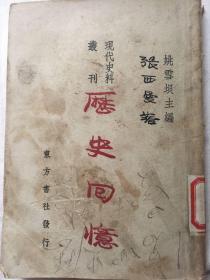 姚雪垠主編
張西曼著
現代史料
叢刊
歷史回憶
東方書社發行